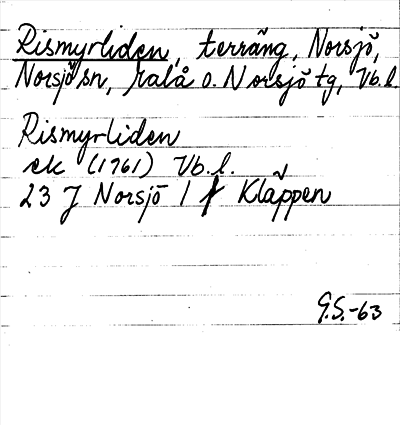 Rismyrliden, terräng, Norsjö,
Norsjö sn, Malå o. Norsjö tg, Vb.l.
Rismyrliden
ek (1761) Vb.l.
23 J Norsjö 1 f Kläppen
G.S.-63